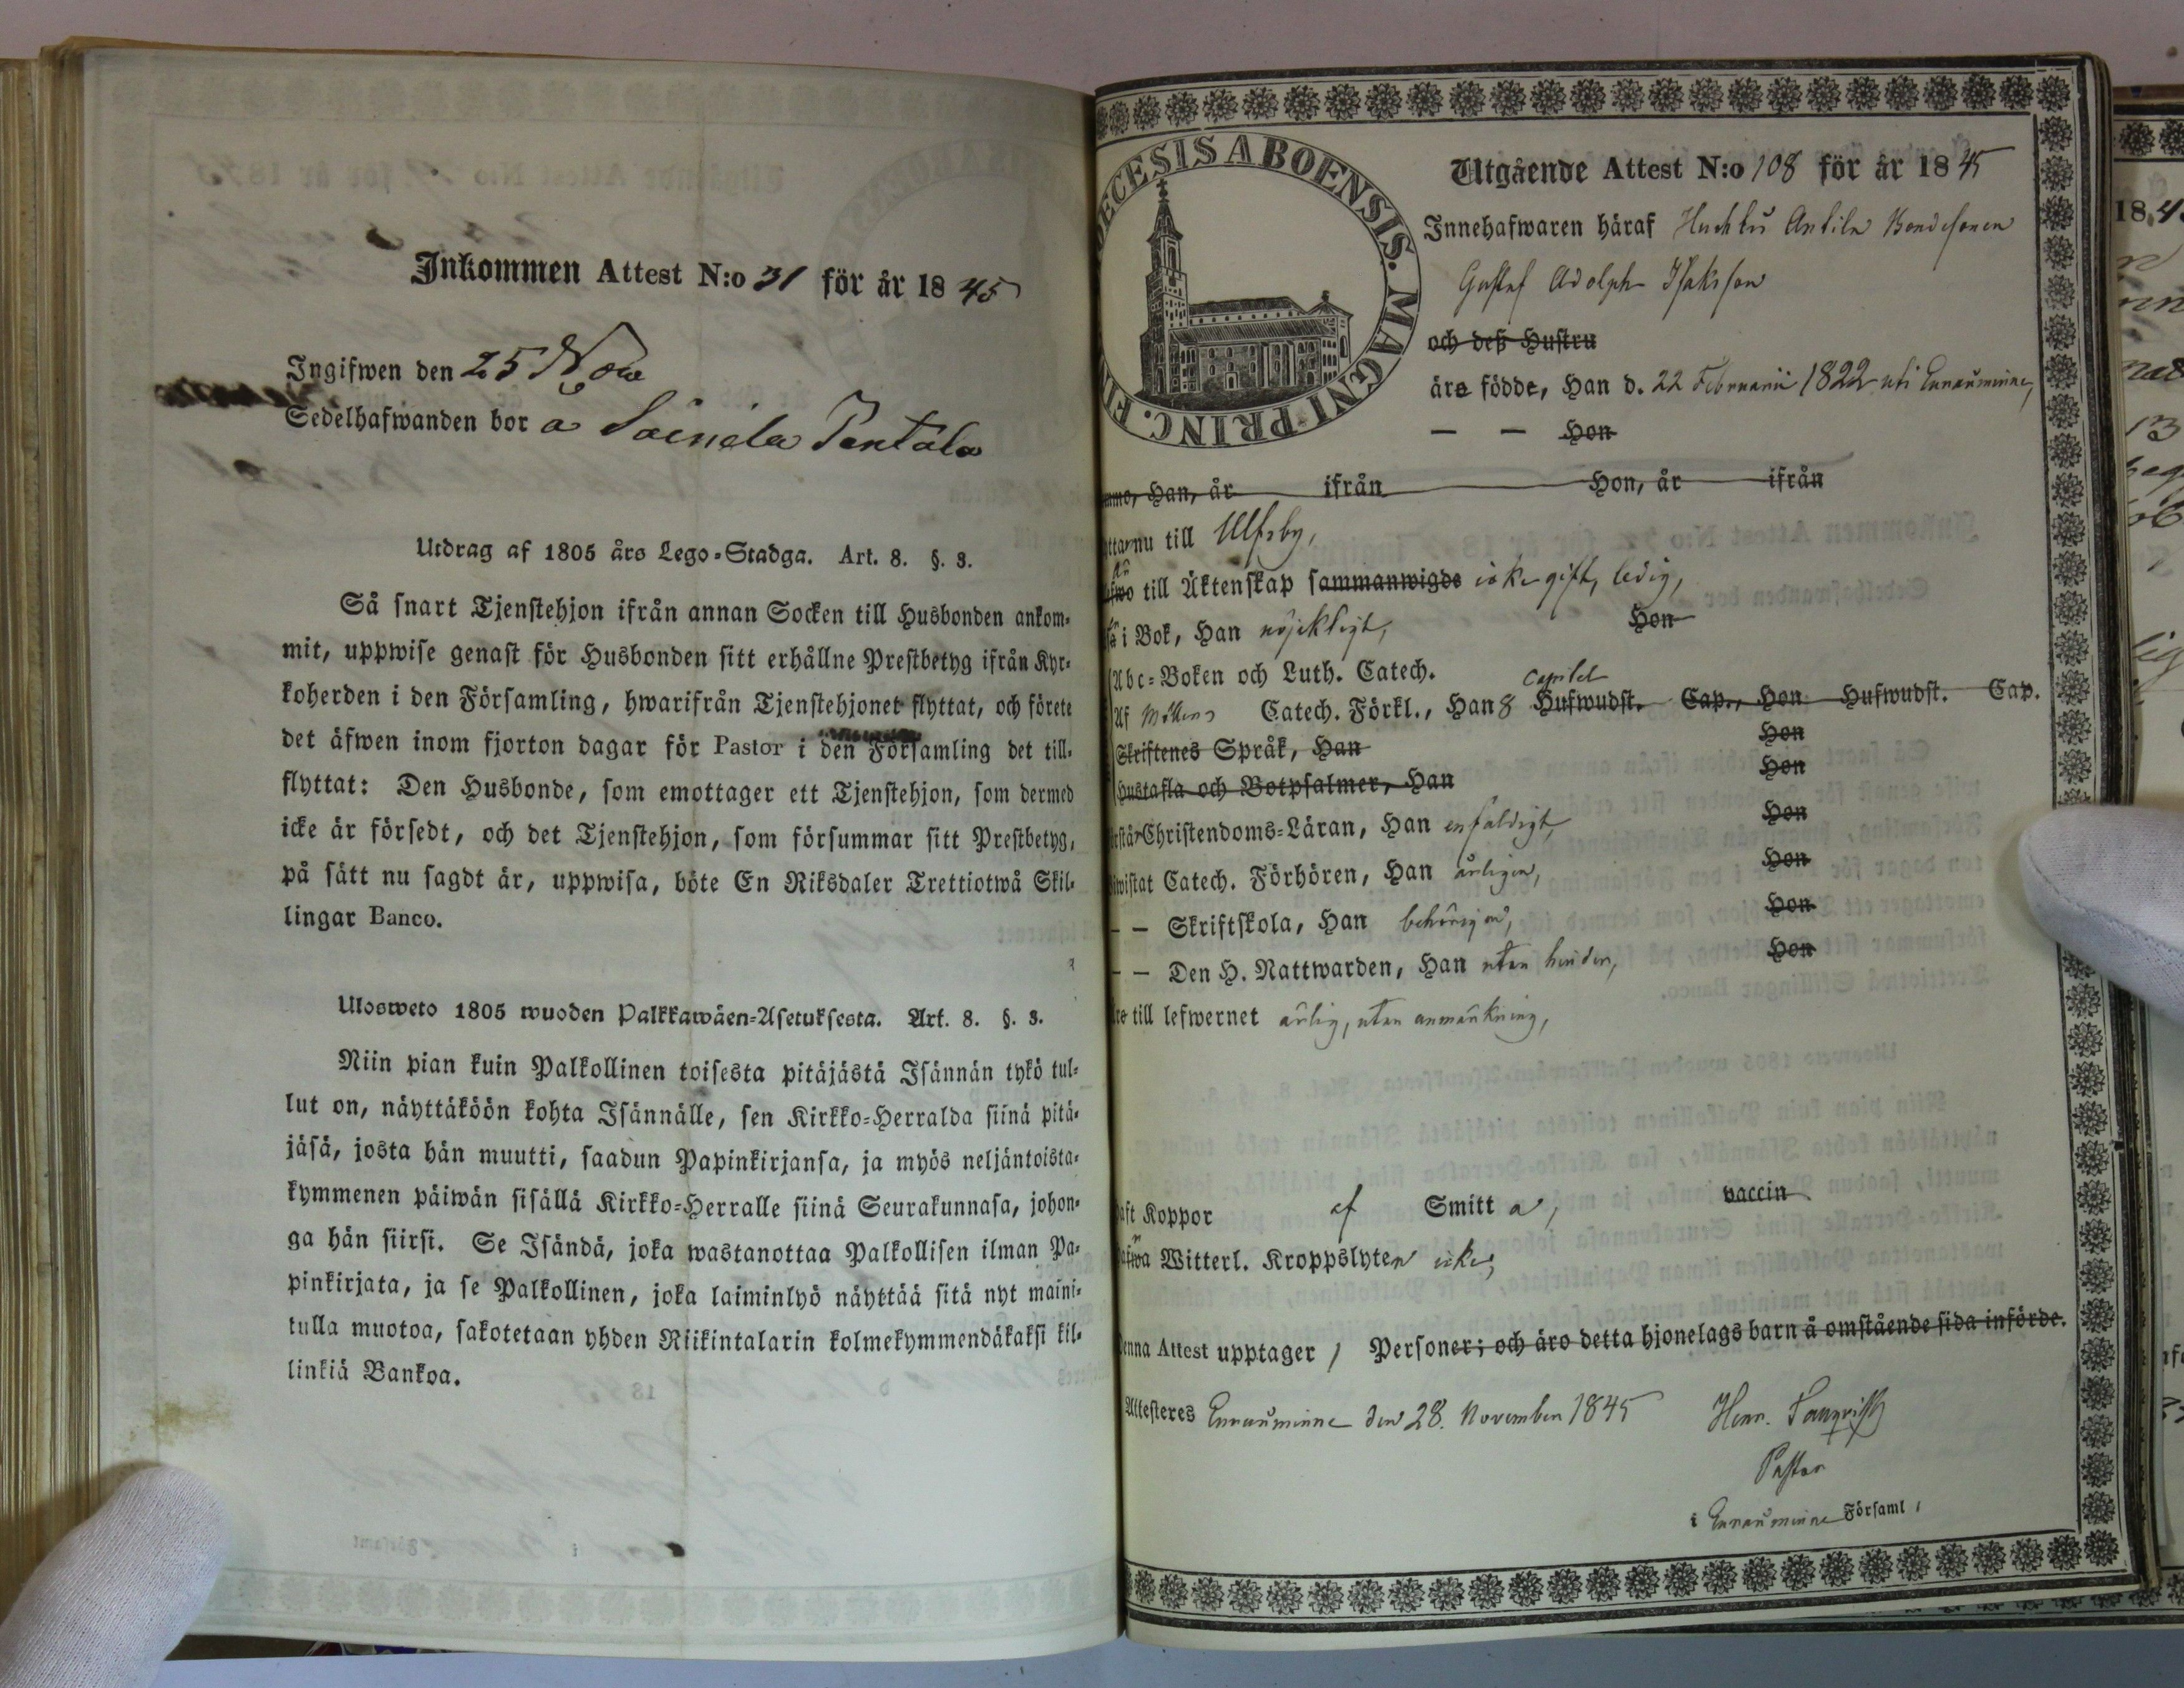 Inkommen Attest N:o 31 för år 1845
Ingifwen den 25 Nov
Sedelhafwanden bor å Soinila Pentala
Utdrag af 1805 års Lego-Stadga. Art. 8. §. 3.
Så snart Tjenstehjon ifrån annan Socken till Husbonden ankom-
mit, uppwise genast för Husbonden sitt erhållne Prestbetyg ifrån Kyr-
koherden i den Församling, hwarifrån Tjenstehjonet flyttat, och förete
det äfwen inom fjorton dagar för Pastor i den Församling det till-
flyttat: Den Husbonde, som emottager ett Tjenstehjon, som dermed
icke är försedt, och det Tjenstehjon, som försummar sitt Prestbetyg,
på sätt nu sagdt är, uppwisa, böte En Riksdaler Trettiotwå Skil-
lingar Banco.
Ulosweto 1805 wuoden Palkkawäen-Asetuksesta. Art. 8. §. 3.
Niin pian kuin Palkollinen toisesta pitäjästä Isännän tykö tul-
lut on, näyttäköön kohta Isännälle, sen Kirkko-Herralda siinä pitä-
jäsä, josta hän muutti, saadun Papinkirjansa, ja myös neljäntoista-
kymmenen päiwän sisällä Kirkko-Herralle siinä Seurakunnasa, johon-
ga hän siirsi. Se Isändä, joka wastanottaa Palkollisen ilman Pa-
pinkirjata, ja se Palkollinen, joka laiminlyö näyttää sitä nyt maini-
tulla muotoa, sakotetaan yhden Riikintalarin kolmekymmendäkaksi kil-
linkiä Bankoa.
DECESIS ABOENSIS. MAGNI PRINC. FI
Utgående Attest N:o 108 för år 1845
Innehafwaren häraf Antila Bondesonen
Gustaf Adolph Isaksson
och deß Hustru
äre födde, Han d. 22 Februarii 1822 uti Euraåminne,
— — Hon
Han, år ifrån Hon, år ifrån
nu till Ulfsby,
till Äktenskap sammanwigde icke gift, ledig,
i Bok, Han nöjeligt, Hon
Abc-Boken och Luth. Catech.
Capitel
Af Möllers Catech. Förkl., Han 8 Hufwudst. Cap., Hon Hufwudst. Cap.
Skriftenes Språk, Han Hon
Hustafla och Botpsalmer, Han Hon
Christendoms-Läran, Han enfaldigt, Hon
Catech. Förhören, Han årligen, Hon
— — Skriftskola, Han behörigen, Hon
— — Den H. Nattwarden, Han utan hinder, Hon
till lefwernet ärlig, utan anmärkning,
Koppor af Smitta, vaccin
Witterl. Kroppslyten icke,
Denna Attest upptager 1 Personer; och äro detta hjonelags barn å omstående sida införde.
Attesteres Euraåminne den 28. November 1845 Henr.
Pastor
i Euraåminne Församl.